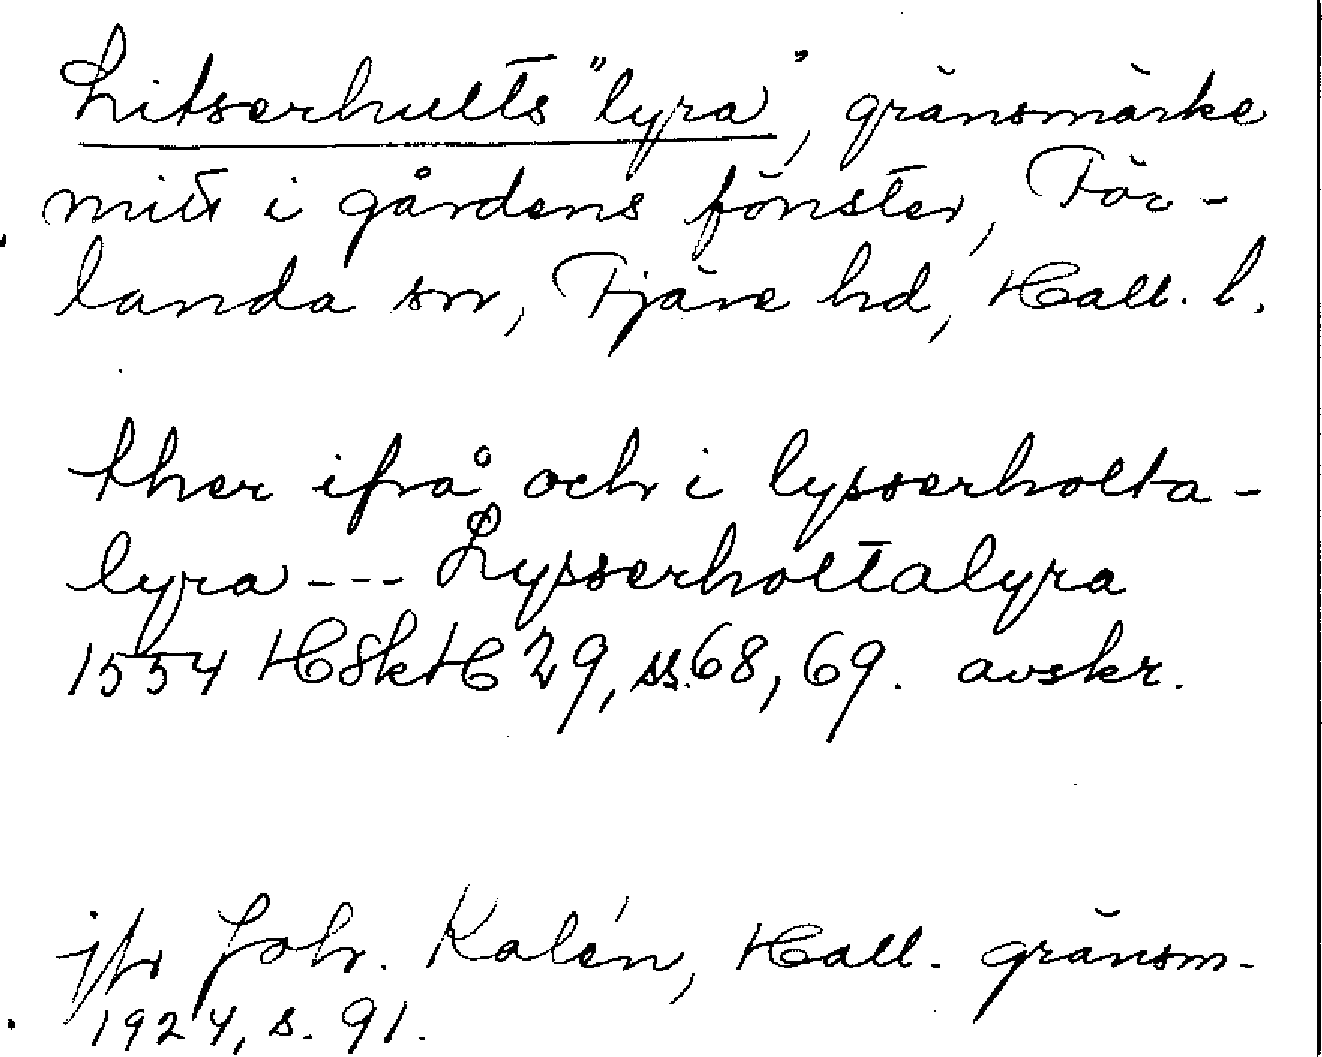 Litserhults "lyra", gränsmärke
mitt i gårdens fönster, För-
landa sn, Fjäre hd, Hall. l.
ther ifrå och i lysserholta-
lyra --- Lysserholtalyra
1554 HSkH 29, ss. 68, 69. avskr.
jfr Joh. Kalén, Hall. gränsm.
1924, s. 91.